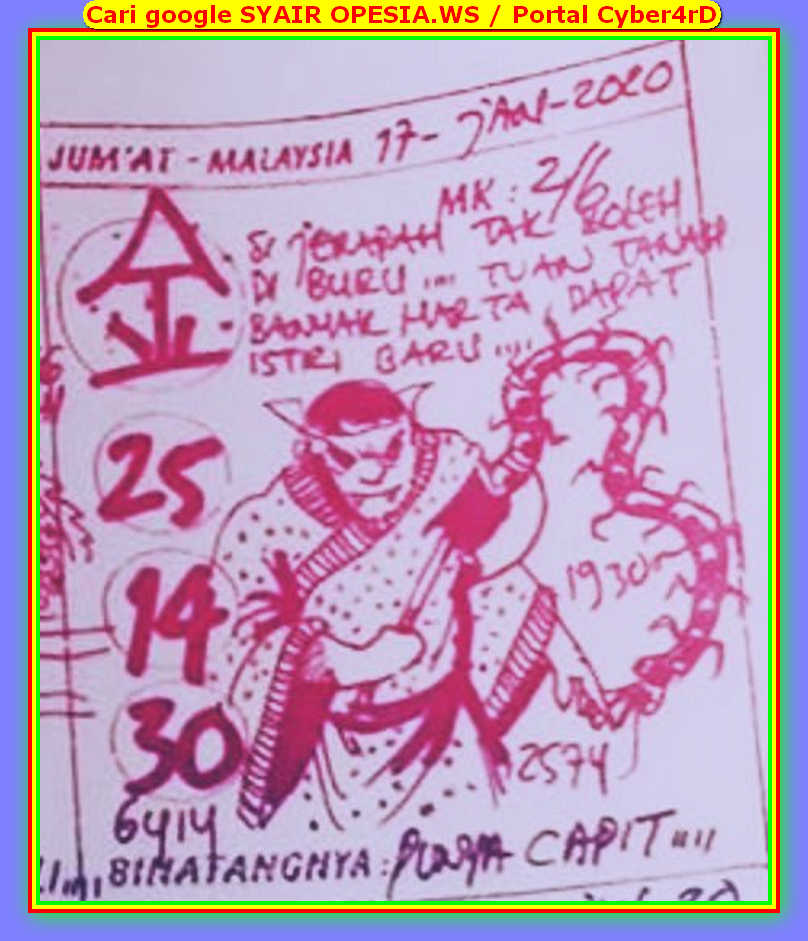 Cari google SYAIR OPESIA.WS / Portal Cyber4rD
JUM'AT - MALAYSIA 17 - JAN - 2020
MK : 2/6
SI JERAPAH TAK BOLEH
DI BURU .... TUAN TANAH
BANYAK HARTA, DAPAT
ISTRI BARU ....
25
14
30
1930
2574
6414
BINATANGNYA : PUNYA CAPIT ....